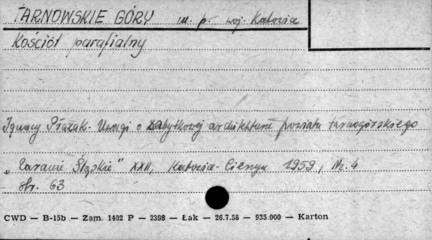 TARNOWSKIE GÓRY m. p. woj. Katowice
Kościół parafialny
Ignacy Płazak. Uwagi o zabytkowej architekturze powiatu tarnogórskiego
„Zaranie Śląskie" XXII, Katowice-Cieszyn 1959, Nr. 4
str. 63
CWD — B-15b — Zam. 1402 P — 2398 — Łak — 26.7.58 — 935.000 — Karton